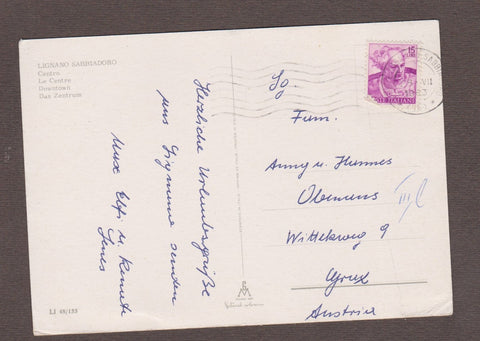 LIGNANO SABBIADORO
Centro
Le Centre
Downtown
Das Zentrum
Herzliche Urlaubsgrüße
aus Lignano senden
Max Elfi u. Renate
LI 48/133
15
POSTE ITALIANE
Fam.
Anny u. Hannes
Wittekweg 9
Graz
Austria